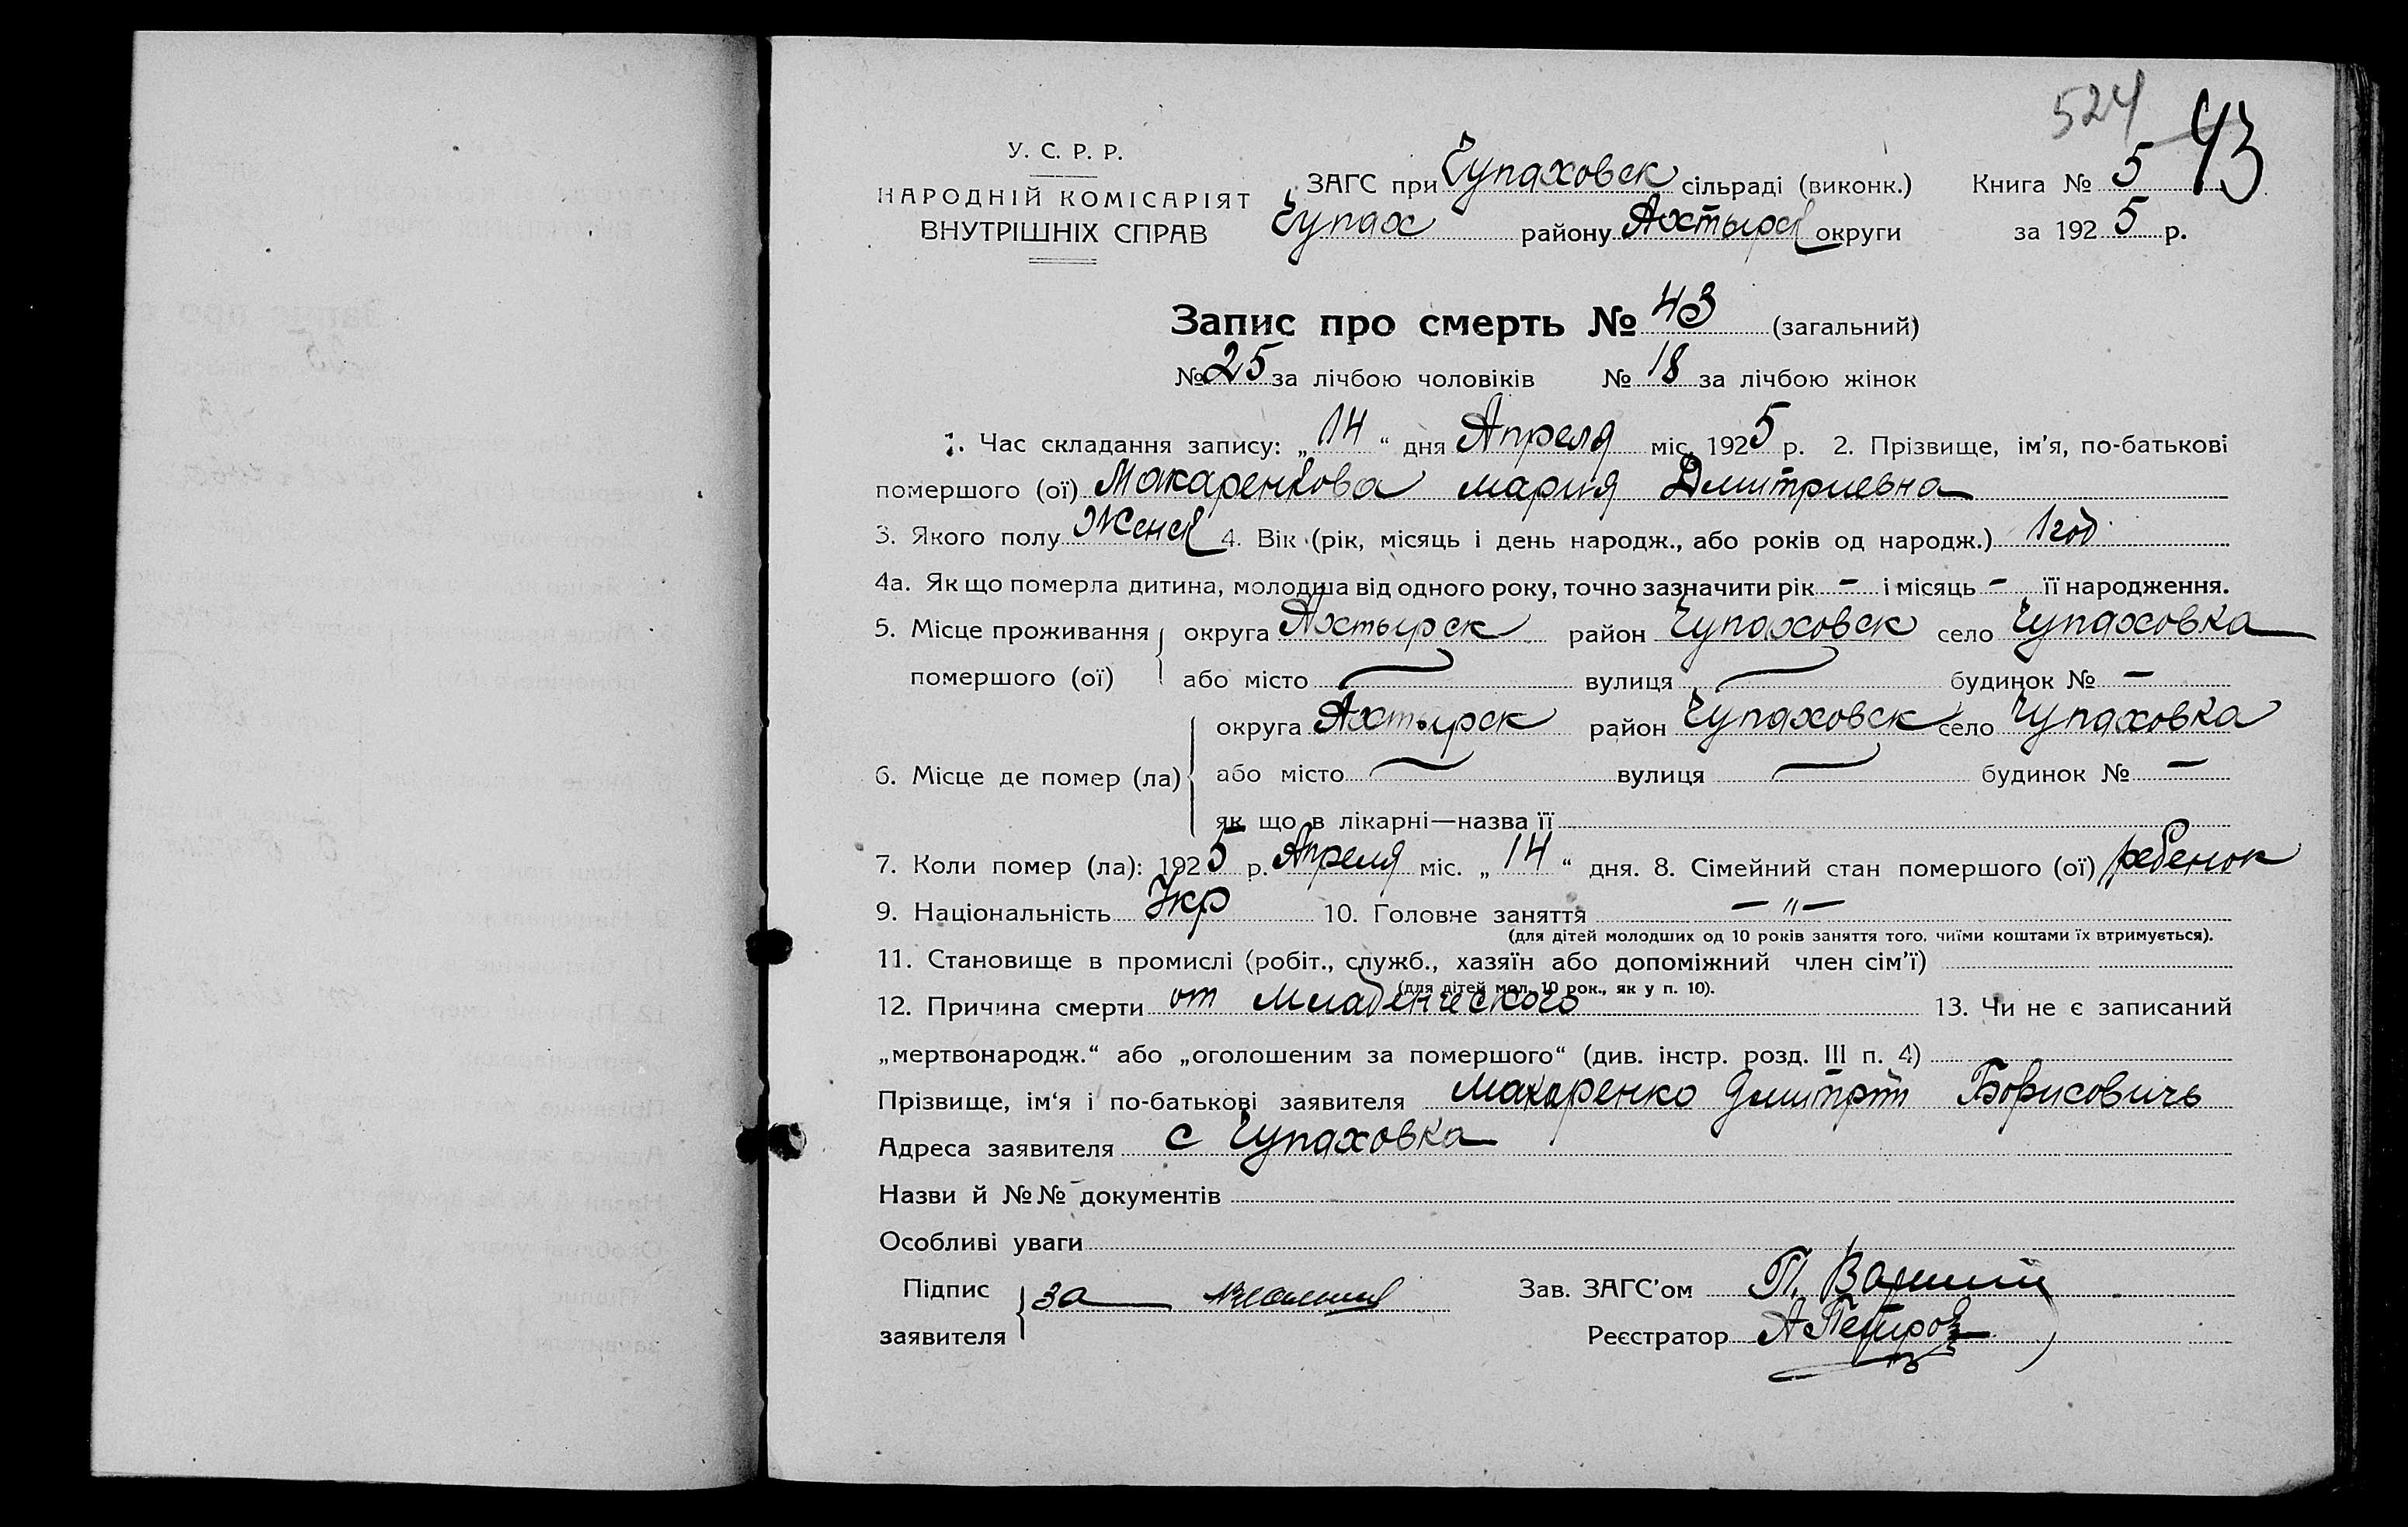 524 43
У. С. Р. Р.
НАРОДНІЙ КОМІСАРІЯТ
ВНУТРІШНІХ СПРАВ
ЗАГС при Чупаховск сільраді (виконк.) Книга № 5
Чупах району Ахтырск округи за 1925 р.
Запис про смерть № 43 (загальний)
№ 25 за лічбою чоловіків № 18 за лічбою жінок
1. Час складання запису: „14“ дня Апреля міс. 1925 р. 2. Прізвище, ім'я, по-батькові
помершого (ої) Макаренкова Мария Дмитриевна
3. Якого полу Женск 4. Вік (рік, місяць і день народж., або років од народж.) 1 год
4а. Як що померла дитина, молодша від одного року, точно зазначити рік — і місяць — її народження.
5. Місце проживання округа Ахтырск район Чупаховск село Чупаховка
помершого (ої) або місто — вулиця — будинок № —
округа Ахтырск район Чупаховск село Чупаховка
6. Місце де помер (ла) або місто — вулиця — будинок № —
як що в лікарні—назва її
7. Коли помер (ла): 1925 р. Апреля міс. „14“ дня. 8. Сімейний стан помершого (ої) ребенок
9. Національність Укр 10. Головне заняття — „ —
(для дітей молодших од 10 років заняття того, чиїми коштами їх втримується).
11. Становище в промислі (робіт., служб., хазяїн або допоміжний член сім'ї)
(для дітей мол. 10 рок., як у п. 10).
12. Причина смерти от Младенческого 13. Чи не є записаний
„мертвонародж.“ або „оголошеним за помершого“ (див. інстр. розд. III п. 4)
Прізвище, ім'я і по-батькові заявителя Макаренко Дмитрій Борисовичь
Адреса заявителя с Чупаховка
Назви й №№ документів
Особливі уваги
Підпис заявителя за Зав. ЗАГС'ом П.
Реєстратор А Петров